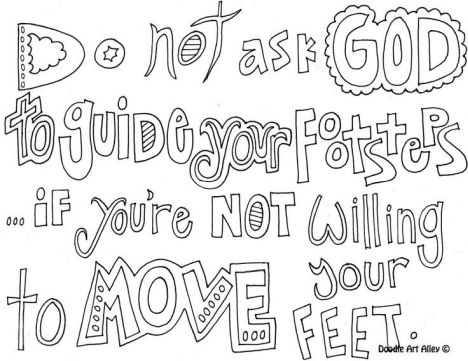 Do not ask GOD
to guide your Footsteps
... if you're NOT willing
to MOVE your
FEET.
Doodle Art Alley ©